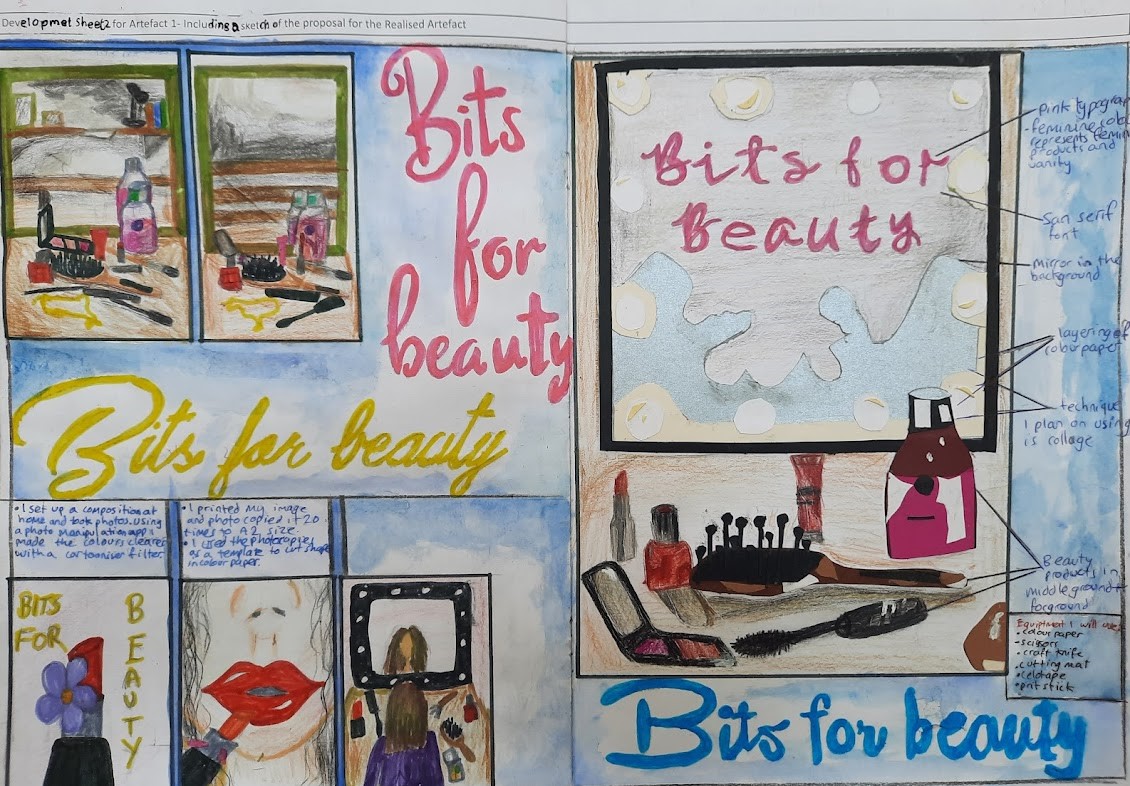 Development Sheet 2 for Artefact 1- Including a sketch of the proposal for the Realised Artefact
Bits
for
beauty
Bits for beauty
• I set up a composition at
home and took photos. Using
a photo manipulation app I
made the colours clearer
with a cartooniser filter.
• I printed my image
and photo copied it 20
times to A2 size
• I used the photocopies
as a template to cut shapes
in colour paper.
BITS
FOR
BEAUTY
Bits for
Beauty
pink typograp
- feminine colo
represents femin
products and
vanity
San serif
font
Mirror in the
background
layering of
colour paper
technique
I plan on using
is collage
Beauty
products in
middle ground +
forground
Equiptment I will use:
• colour paper
• scissors
• craft knife
• cutting mat
• celotape
• prit stick
Bits for beauty